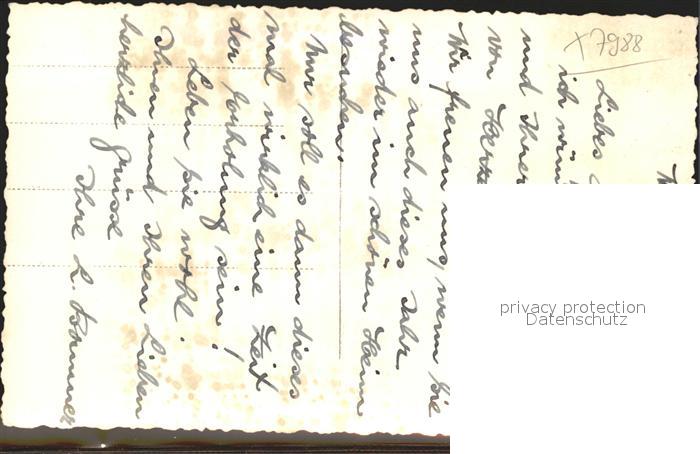 x 7988
Liebes
ich
und Ihrer
von
Wir freuen uns, wenn Sie
uns auch dieses Jahr
wieder im schönen Heim
besuchen.
Nur soll es dann dieses
mal wirklich eine Zeit
der Erholung sein!
Leben Sie wohl!
Ihnen und Ihren Lieben
herzliche Grüsse
Ihre L.
privacy protection
Datenschutz